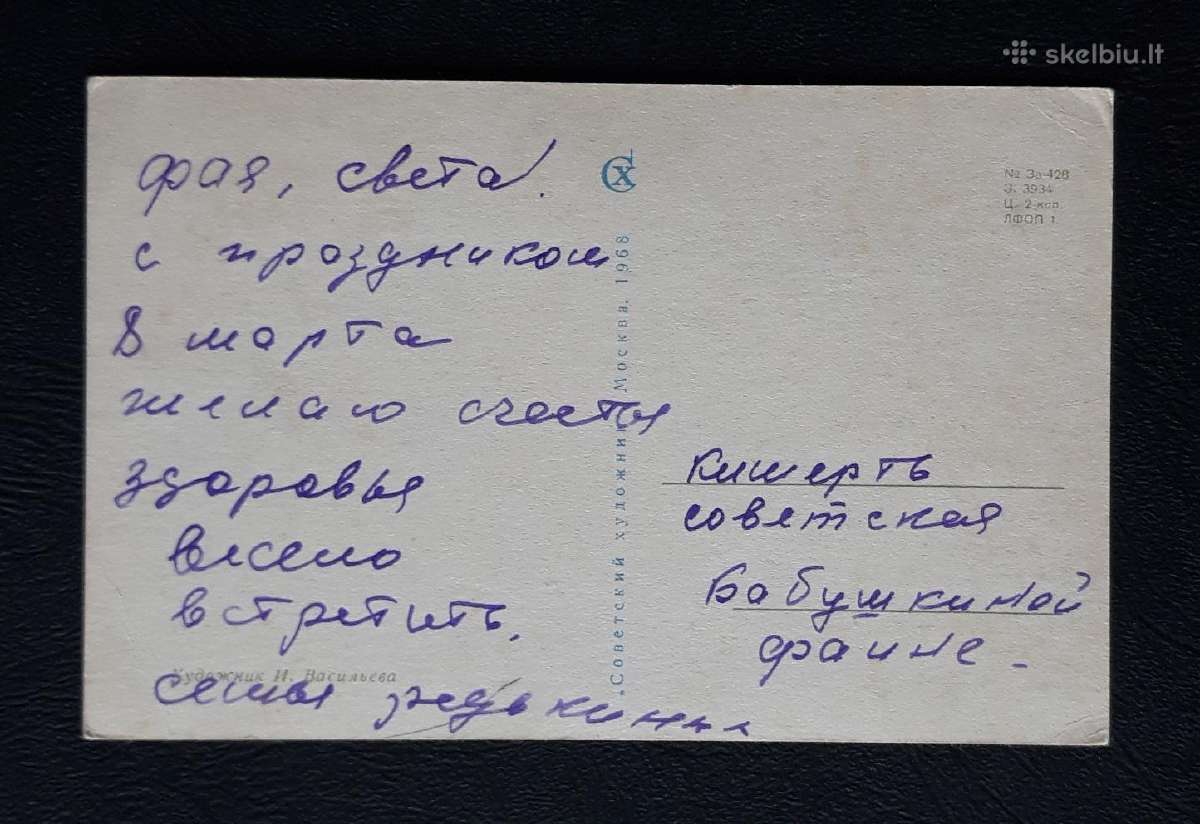 skelbiu.lt
фая, света!
с праздником
8 марта
желаю счастья
здоровья
весело
встретить.
семья
Художник И. Васильева
СХ
„Советский художник" Москва. 1968
№ 3а-428
З. 3934
Ц. 2 коп.
ЛФОП 1
кишерть
советская
Бабушкиной
фаине -